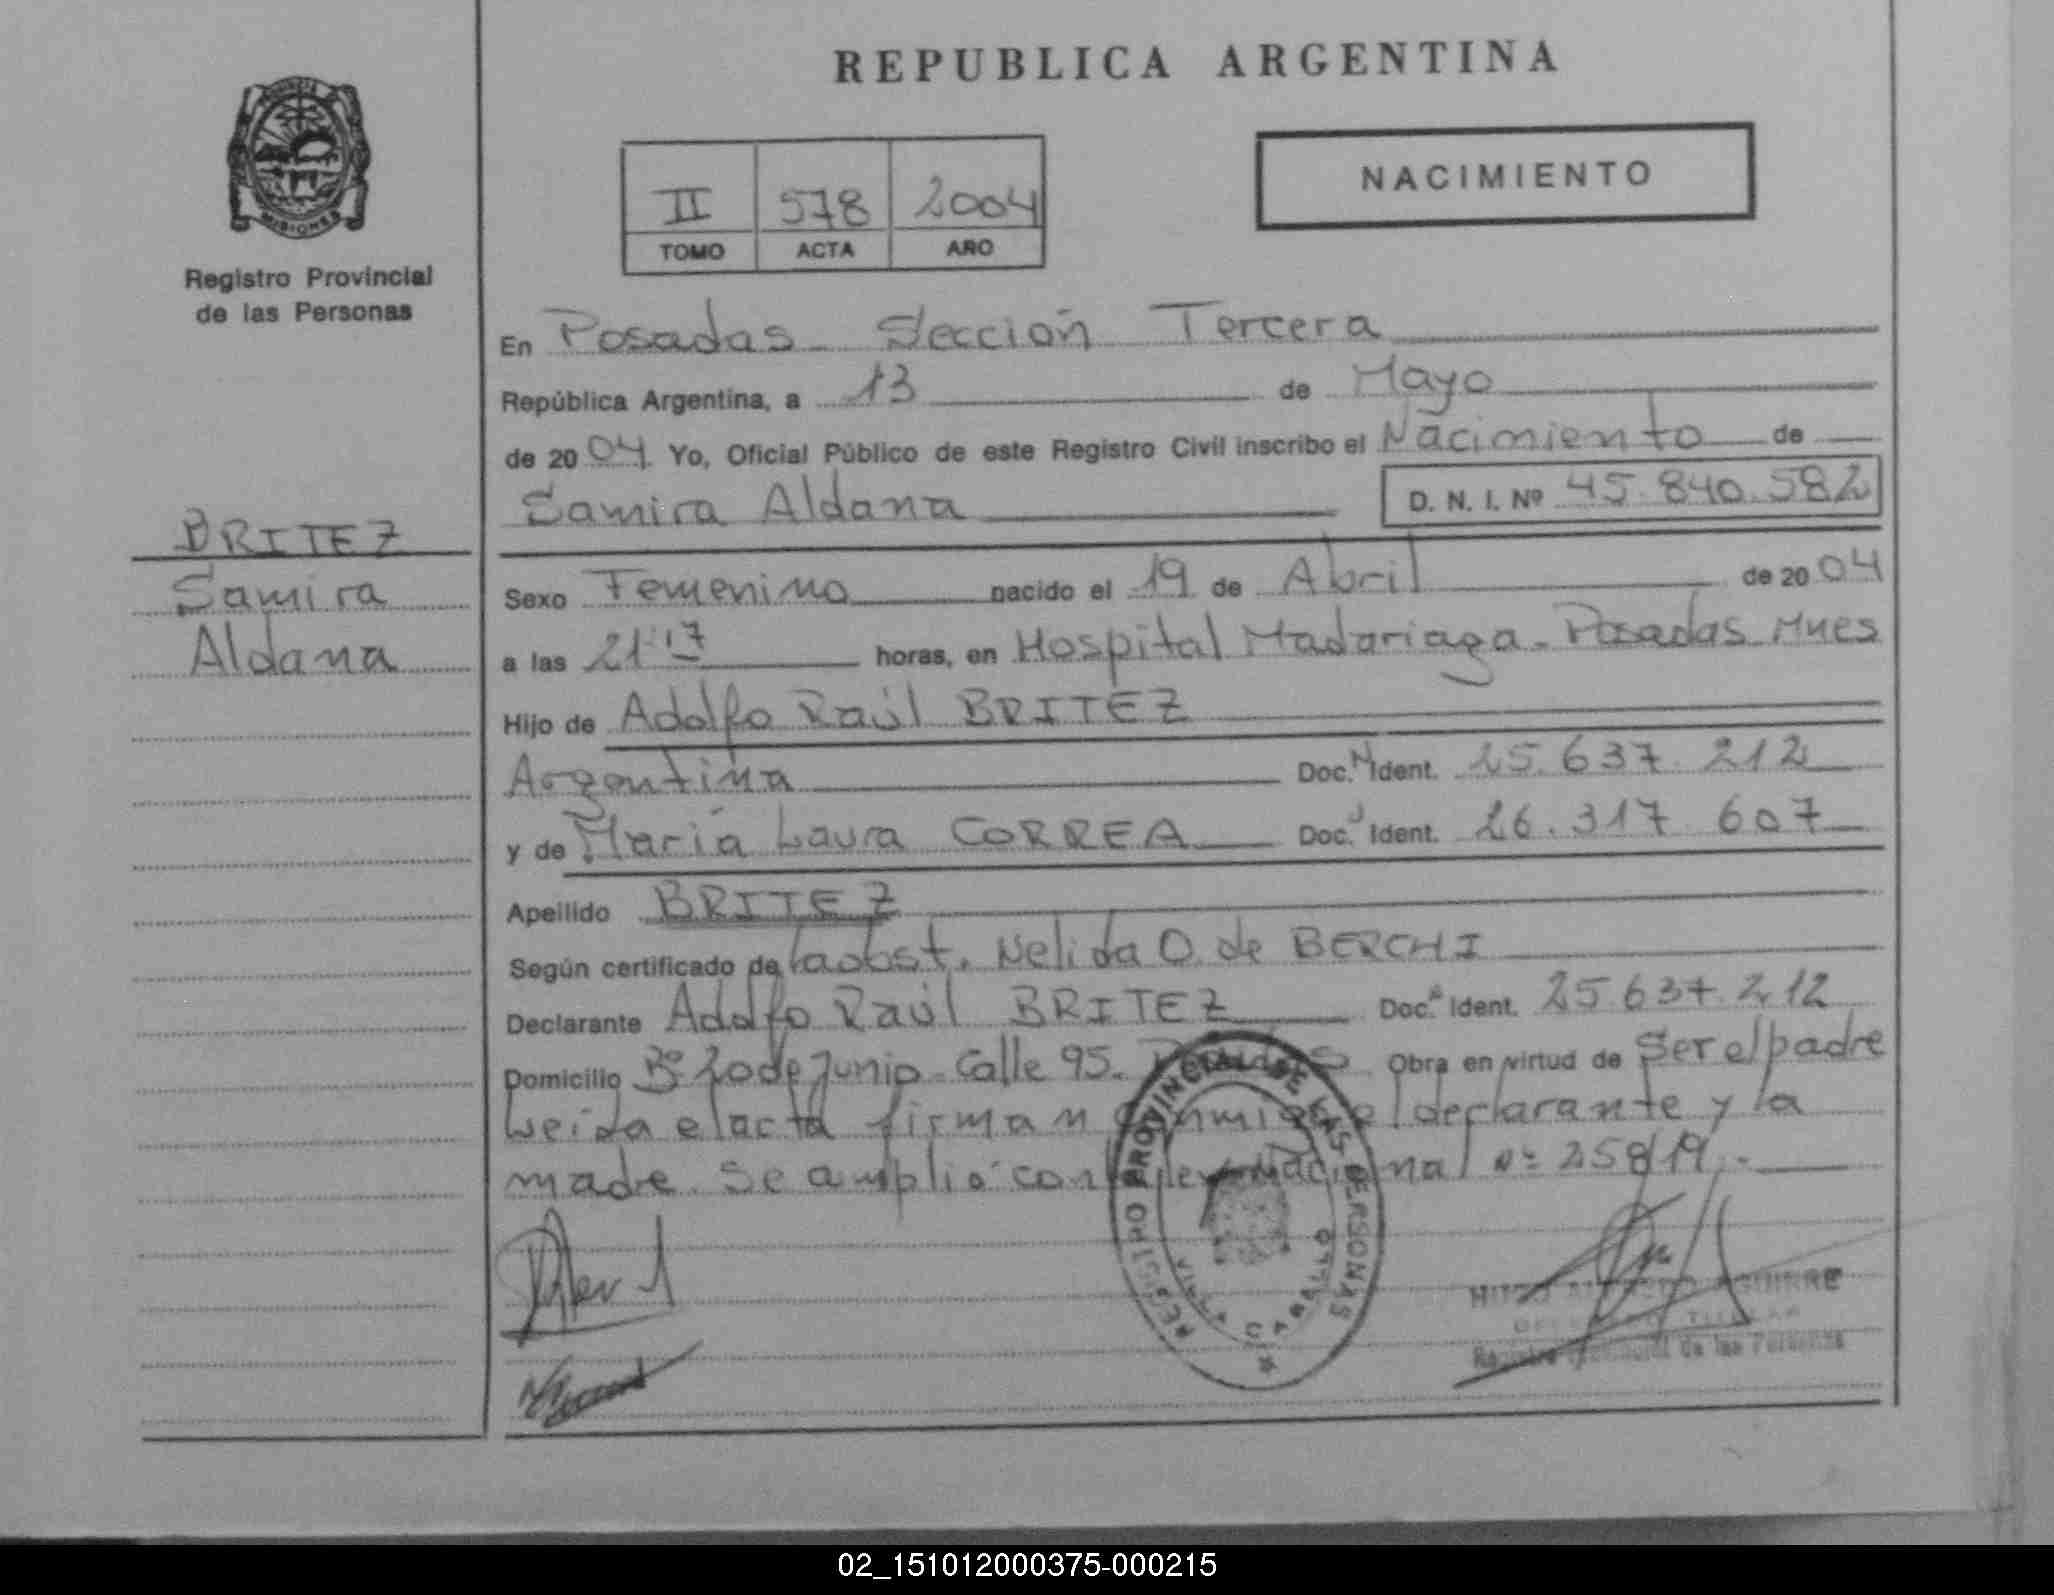 REPUBLICA ARGENTINA
NACIMIENTO
II 578 2004
TOMO ACTA AÑO
PROVINCIA DE
MISIONES
Registro Provincial
de las Personas
En Posadas - Sección Tercera
República Argentina, a 13 de Mayo
de 2004 Yo, Oficial Público de este Registro Civil inscribo el Nacimiento de
Samira Aldana D. N. I. Nº 45.840.582
BRITEZ
Samira
Aldana
Sexo Femenino nacido el 19 de Abril de 2004
a las 21:17 horas, en Hospital Madariaga - Posadas Mnes
Hijo de Adolfo Raúl BRITEZ
Argentina Doc. N Ident. 25.637.212
y de María Laura CORREA Doc. Ident. 26.317.607
Apellido BRITEZ
Según certificado de la obst. Nelida O. de BERCHI
Declarante Adolfo Raúl BRITEZ Doc. Ident. 25.637.212
Domicilio Bº 20 de Junio - Calle 95. Obra en virtud de Ser el padre
Leída el acta firman conmigo el declarante y la
madre. Se amplió con ley Nacional Nº 258/19.-
REGISTRO PROVINCIAL DE LAS PERSONAS
AGUIRRE
TITULAR
Registro Provincial de las Personas
02_151012000375-000215